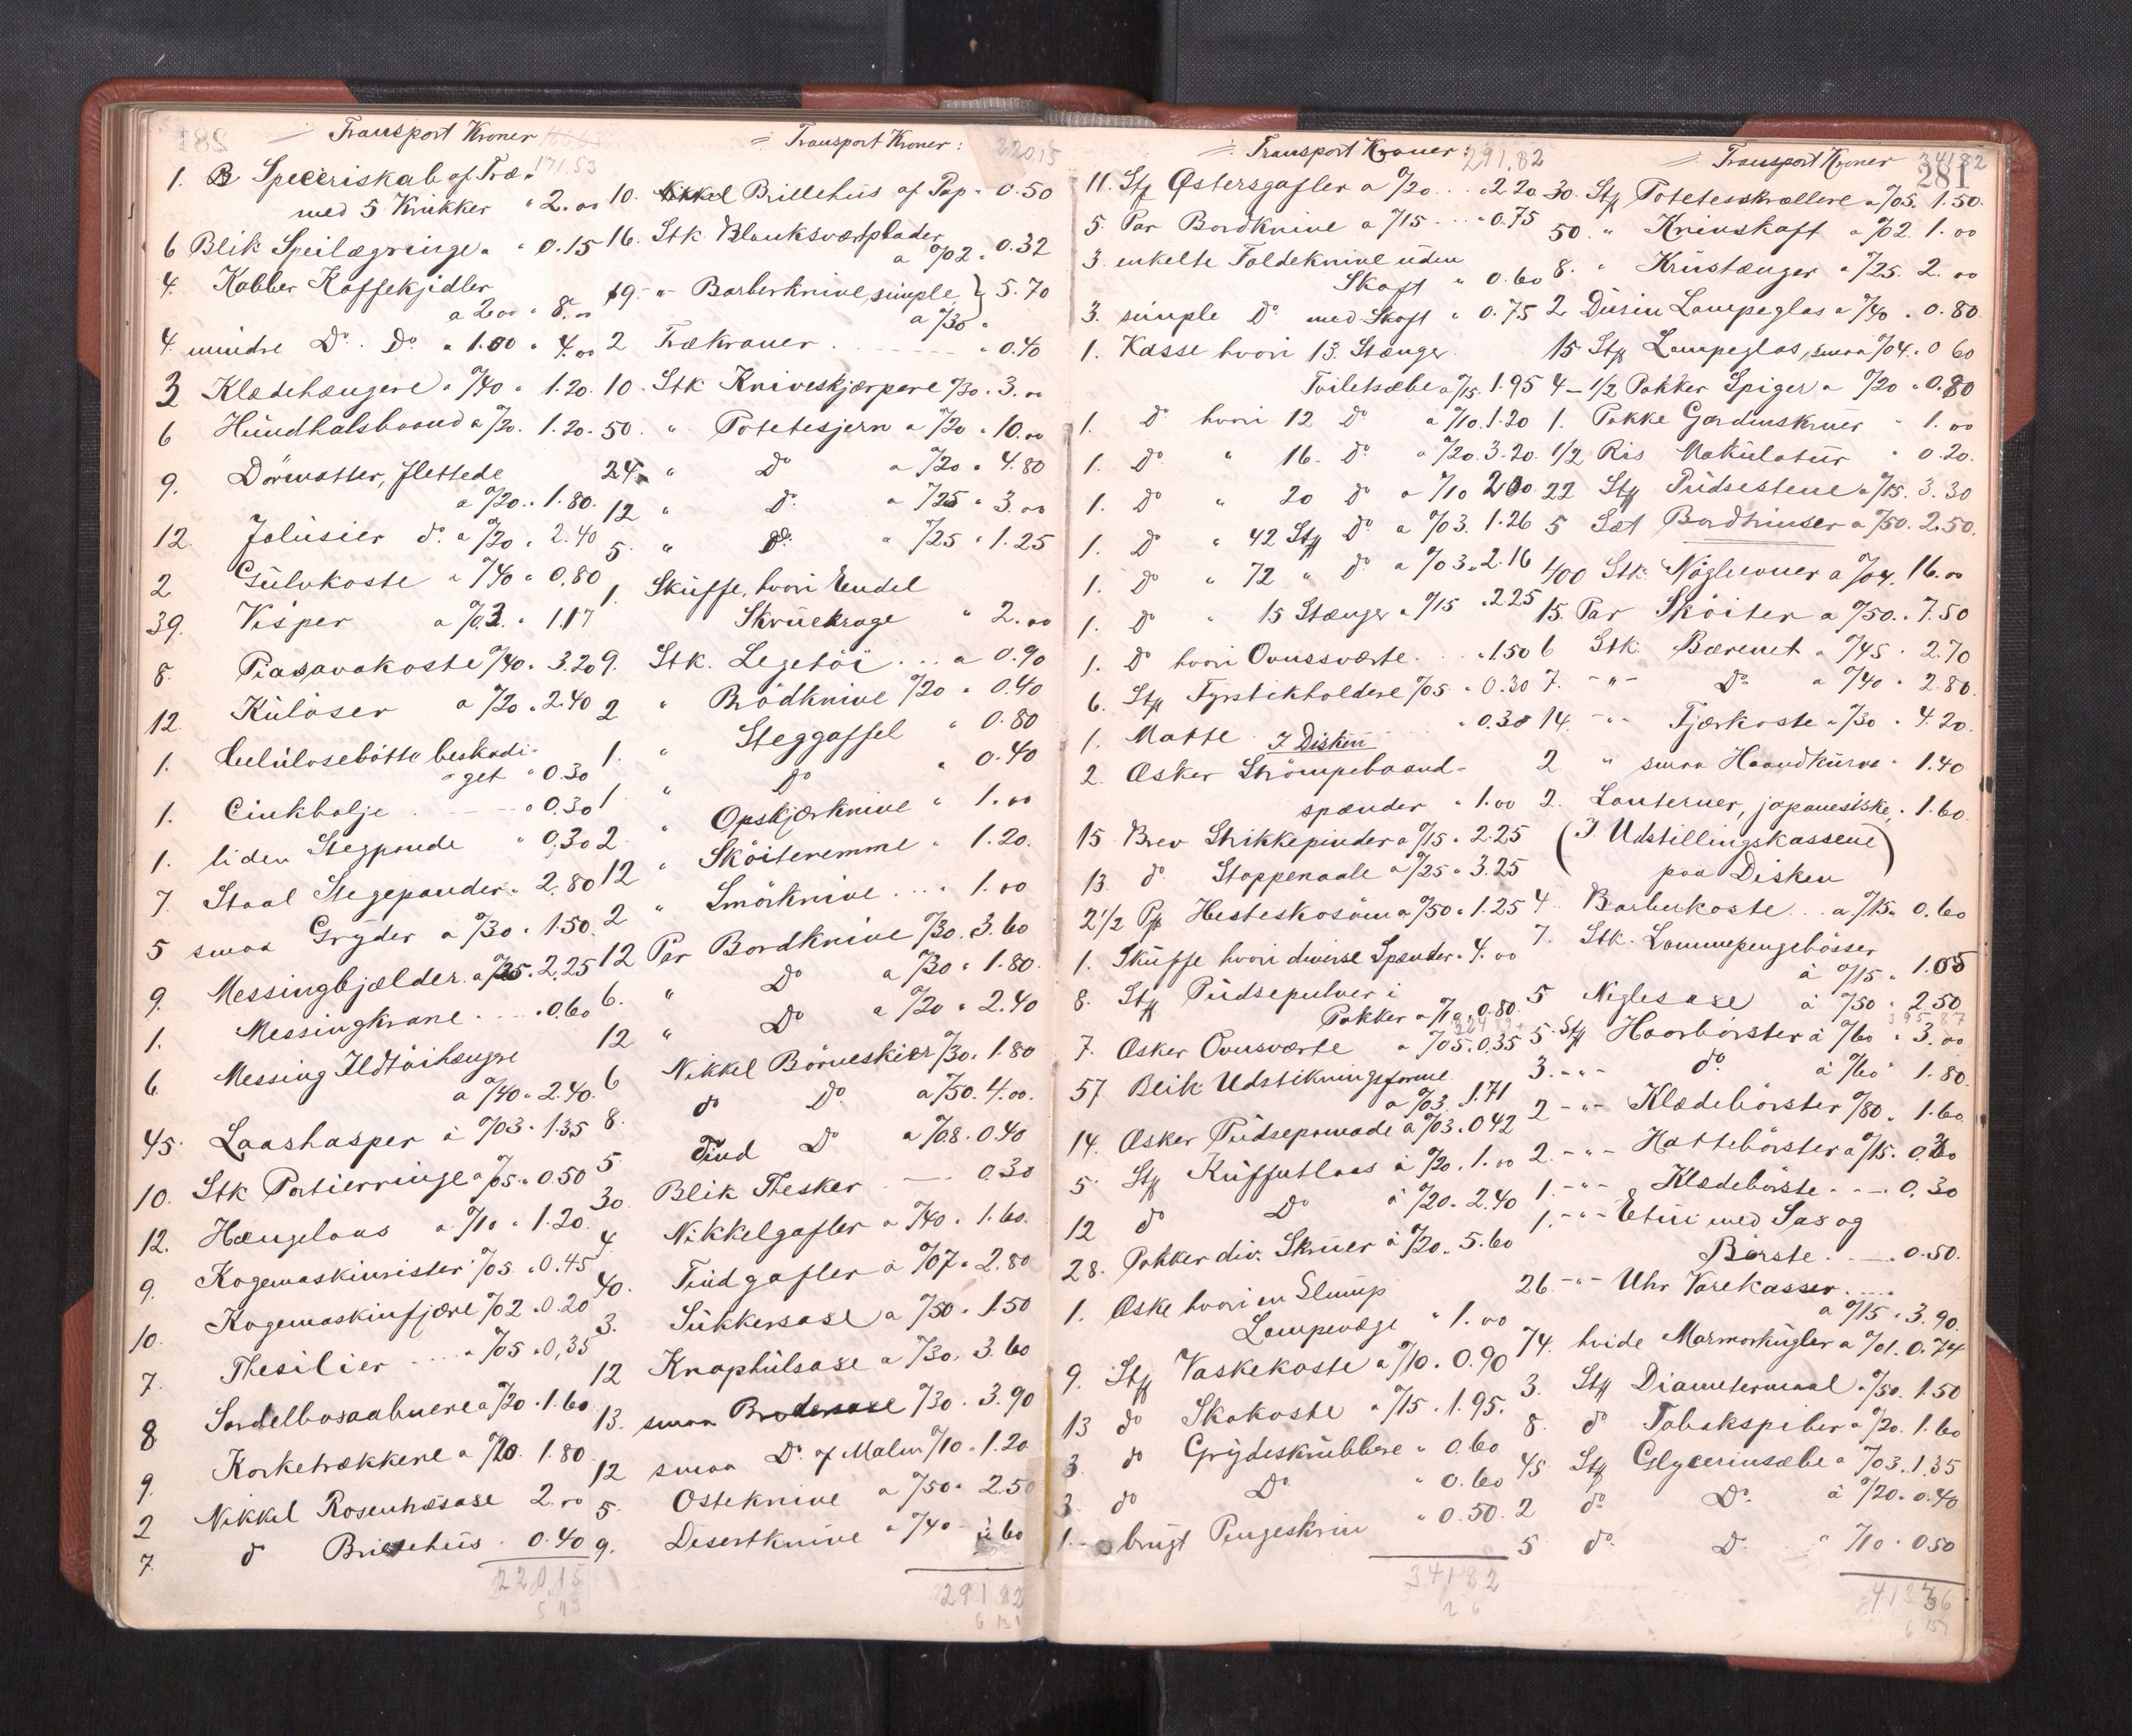 Transport Kroner
171.53
1. Speceriskab af Træ
med 5 Krukker " 2.00
6 Blik Speilægringe " 0.15
4. Kobber Kaffekjedler
a 2.00 " 8.00
4. mindre Do. Do " 1.00 " 4.00
3 Klædehængere " %40 " 1.20.
6 Hundhalsbaand a %20. 1.20.
9. Dörmatter, flettede
a %20. 1.80.
12. Jalusier do. a %20. 2.40
2 Gulvkoste a %40 " 0.80
39. Visper a %03. " 1.17
8. Piasavakoste %40. 3.20
12. Kuløser a %20 " 2.40
1. Celulosebøtte beskadi-
get " 0.30
1. Cinkbalje " 0.30
1. liden Stegpande " 0.30
7. Staal Stegepander " 2.80
5 smaa Gryder a %30. 1.50.
9. Messingbjælder a %25. 2.25
1. Messingkrane " 0.60
6. Messing Ildtöihængere
a %40 " 2.40.
45. Laashasper à %03. 1.35
10. Stk Portierringe a %05. 0.50
12. Hængelaas a %10 " 1.20
9. Kogemaskinrister %05. 0.45
10. Kogemaskinfjære %02. 0.20
7. Thesilier " %05. 0,35
8 Sardelbosaabnere a %20. 1.60
9. Korketrækkere a %20. 1.80
2 Nikkel Rosenhæsaxe 2.00
7. do Brillehüs. 0.40
220.15
Transport Kroner: 220.15
10. Brillehüs af Pap " 0.50
16. Stk Blanksværtplader
a %02 " 0.32
19. " Barberknive, simple, } 5.70
a %30 "
2 Trækraner " 0.40
10. Stk Kniveskjærpere %30. 3.00
50. " Potetesjern a %20 " 10.00
24. " Do a %20 " 4.80
12 " Do. a %25 " 3.00
5. " Do. " %25 " 1.25
1. Skuffe, hvori Endel
Skruekroge " 2.00
9. Stk. Legetöi ... a 0.90
2 " Brödknive %20 " 0.40
1. " Steggaffel " 0.80
1 " Do " 0.40
2. " Opskjærknive " 1.00
12 " Sköiteremme " 1.20.
2 " Smörknive .... 1.00
12 Par Bordknive %30. 3.60
6. " Do a %30 " 1.80.
12 " Do a %20 " 2.40
6 Nikkel Börneskier %30. 1.80
8. do Do. a %50. 4.00.
5 Tind Do a %08. 0.40
30 Blik Thesker 0.30
4. Nikkelgafler a %40. 1.60.
40. Tindgafler a %07. 2.80
3. Sukkersaxe a %50. 1.50
12 Knaphulsaxe a %30. 3.60
13. smaa Brodersaxe %30. 3.90
12 smaa Do. af Malm %10. 1.20
5. Osteknive a %50. 2.50
9. Desertknive " %40 3.60
291.82
Transport Kroner: 291.82
11. Stk Østersgafler a %20 ... 2.20
5. Par Bordknive a %15 ... 0.75
3. enkelte Foldeknive uden
Skaft " 0.60
3. simple Do med Skaft " 0.75
1. Kasse hvori 13. Stænger
Toiletsæbe a %15. 1.95
1. Do hvori 12 Do a %10. 1.20
1. Do " 16. Do " %20. 3.20.
1. Do " 20 Do a %10 2.00
1. Do " 42 Stk Do a %03. 1.26
1. Do " 72 " Do a %03. 2.16
1. Do " 15 Stænger a %15 " 2.25
1. Do hvori Ovnssværte. " 1.50
6. Stk Fyrstikholdere %05. 0.30
1. Matte " 0.30
I Disken
2. Æsker Strömpebaand-
spænder " 1.00
15 Brev Strikkepinder a %15. 2.25
13. do. Stoppenaale a %25. 3.25
2 1/2 Pk Hesteskosöm a %50. 1.25
1. Skuffe hvori diverse Spænder. 4.00
8. Stk Pudsepulver i
Pakker a %10. 0.80
7. Æsker Ovnsværte " %05. 0.35
57. Blik Udstikningsforme
a %03. 1.71
14. Æsker Pudsepomade a %03. 0.42
5. Stk Kuffertlaas à %20. 1.00
12 do Do à %20. 2.40
28. Pakker div. Skruer à %20. 5.60
1. Æske hvori en Slump
Lampevæge " 1.00
9. Stk Vaskekoste a %10. 0.90
13 do Skokoste " %15. 1.95.
3. do Grydeskrubbere " 0.60
3. do Do. " 0.60
1. brugt Pengeskrin " 0.50.
341.82
Transport Kroner 341.82
281
30. Stk Potetesskrællere a %05. 1.50.
50. " Knivskaft a %02. 1.00
8. " Krustænger " %25. 2.00
2 Dusin Lampeglas a %40. 0.80
15 Stk Lampeglas, smaa %04. 0.60
4 - 1/2 Pakker Spiger a %20 " 0.80
1. Pakke Gardinskruer " 1.00
1/2 Ris Makulatur " 0.20.
22 Stk Pudsestene a %15. 3.30
5 Sæt Bordskinser a %50. 2.50.
400 Stk. Nöglevner a %04. 16.00
15. Par Sköiter a %50. 7.50
6 Stk. Bærenet a %45. 2.70
7. -"- Do a %40. 2.80.
14. -"- Tjærkoste a %30. 4.20.
2. " smaa Haandkurve. 1.40
2. Lanterner, japanesiske. 1.60.
(I Udstillingskassene
paa Disken)
4. Barberkoste .. a %15. 0.60
7. Stk. Lommepengebösser
à %15. 1.05
5 Neglesaxe à %50 " 2.50
5. Stk Haarbörster à %60 " 3.00
3. -"- do. à %60 " 1.80.
2 -"- Klædebörster %80. 1.60
2. -"- Hattebörster a %15. 0.30
1. -"- Klædebörste 0.30
1. -"- Etui med Sax og
Börste 0.50.
26. -"- Uhr Varekasser
a %15. 3.90.
74. hvide Marmorkugler a %01. 0.74
3. Stk Diametermaal " %50. 1.50
8. do Tobakspiber a %20. 1.60
45. Stk Glycerinsæbe a %03. 1.35
2 do. Do. à %20. 0.40
5 do. Do. " %10. 0.50